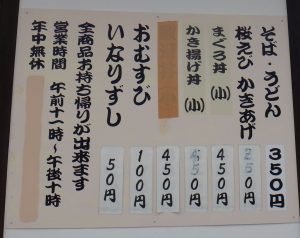 そば・うどん 350円
桜えび かきあげ 250円
まぐろ丼(小) 450円
かき揚げ丼(小) 450円
450円
おむすび 100円
いなりずし 50円
全商品お持ち帰りが出来ます
営業時間 午前十一時~午後十時
年中無休